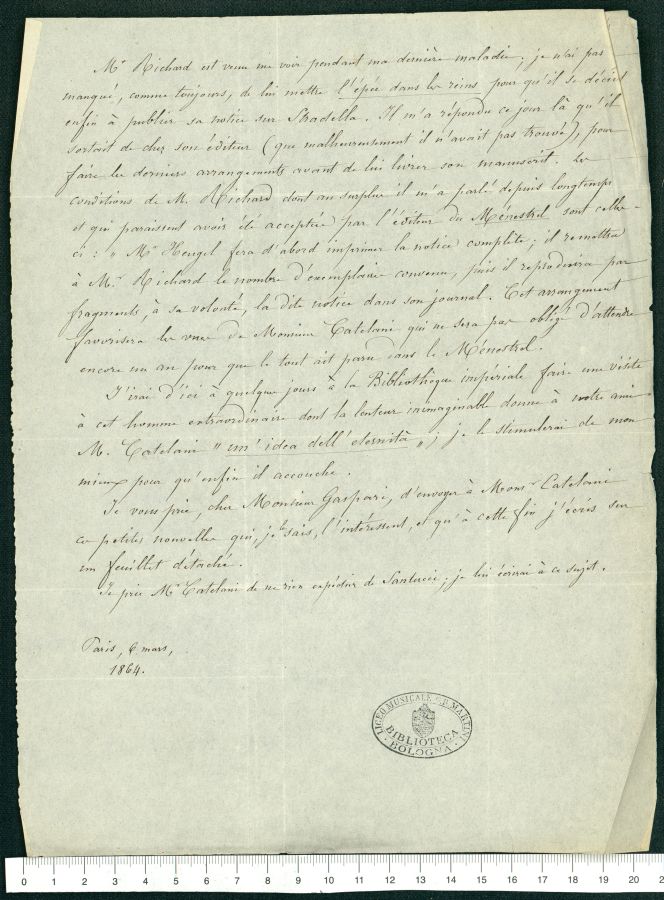 Mr Richard est venu me voir pendant ma dernière maladie. je n'ai pas
manqué, comme toujours, de lui mettre l'épée dans les reins pour qu'il se décidât
enfin à publier sa notice sur Stradella. Il m'a répondu ce jour là qu'il
sortait de chez son éditeur (que malheureusement il n'avait pas trouvé), pour
faire les derniers arrangements avant de lui livrer son manuscrit. Les
conditions de M. Richard dont au surplus il m'a parlé depuis longtemps
et qui paraissent avoir été acceptées par l'éditeur du Ménestrel sont celles
ci : " Mr Heugel fera d'abord imprimer la notice complète; il remettra
à Mr Richard le nombre d'exemplaires convenu, puis il reproduira par
fragments, à sa volonté, la dite notice dans son journal. Cet arrangement
favorisera les vues de Monsieur Catelani qui ne sera pas obligé d'attendre
encore un an pour que le tout ait paru dans le Ménestrel.
J'irai d'ici à quelques jours à la Bibliothèque impériale faire une visite
à cet homme extraordinaire dont la lenteur inimaginable donne à votre ami
M. Catelani "un' idea dell' eternità"; je le stimulerai de mon
mieux pour qu'enfin il accouche.
Je vous prie, cher Monsieur Gaspari, d'envoyer à Monsr Catelani
ces petites nouvelles qui, je le sais, l'intéressent, et qu'à cette fin j'écris sur
un feuillet détaché.
Je prie Mr Catelani de ne rien expédier de Santucci; je lui écrirai à ce sujet.
Paris, 6 mars,
1864.
LICEO MUSICALE G.B. MARTINI
BIBLIOTECA
BOLOGNA
0 1 2 3 4 5 6 7 8 9 10 11 12 13 14 15 16 17 18 19 20